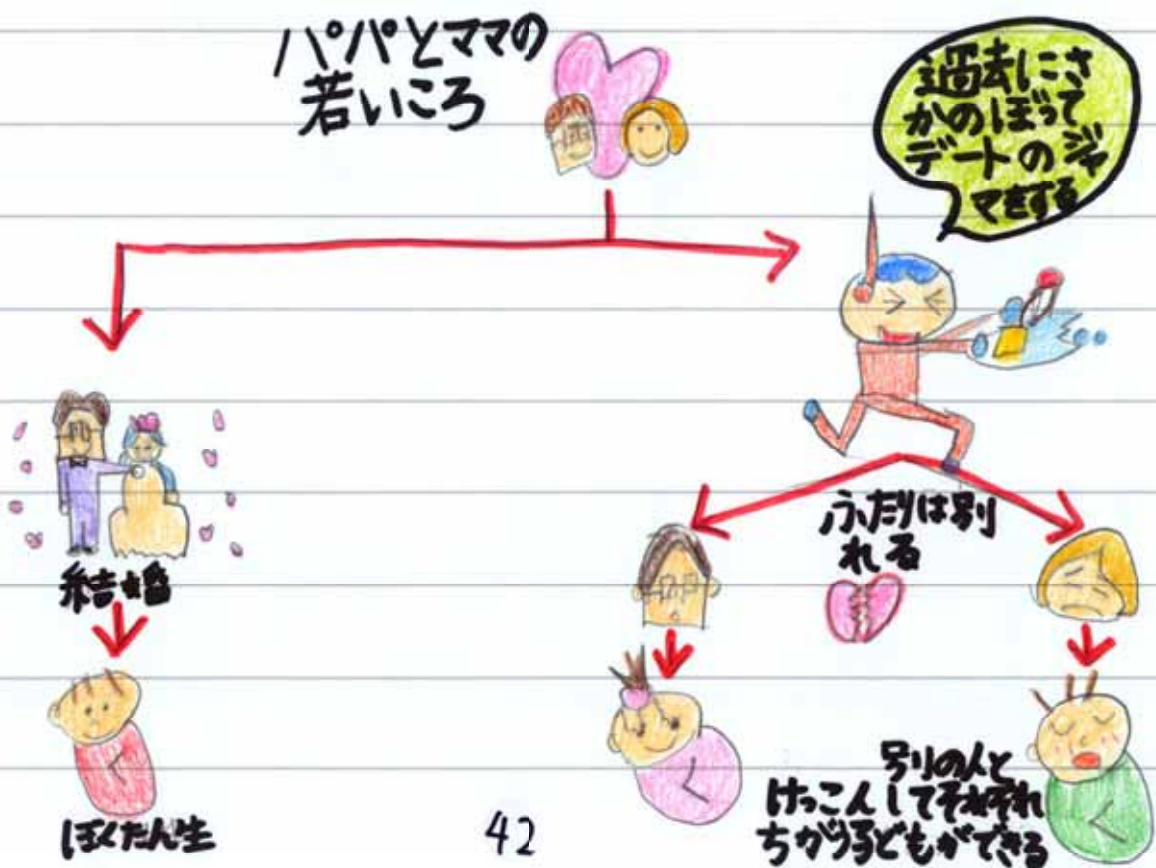 パパとママの
若いころ
過去にさ
かのぼって
デートのジャ
マをする
結婚
ぼくたん生
ふたりは別
れる
別の人と
けっこんしてそれぞれ
ちがう子どもができる
42